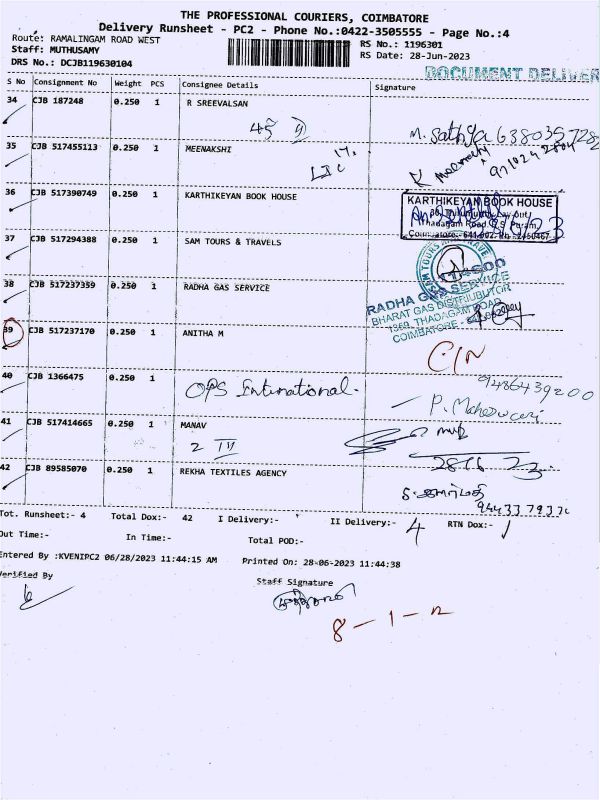 THE PROFESSIONAL COURIERS, COIMBATORE
Delivery Runsheet - PC2 - Phone No.:0422-3505555 - Page No.:4
Route: RAMALINGAM ROAD WEST
RS No.: 1196301
Staff: MUTHUSAMY
RS Date: 28-Jun-2023
DRS No.: DCJB119630104
DOCUMENT DELIVER
S No Consignment No Weight PCS Consignee Details Signature
34 CJB 187248 0.250 1 R SREEVALSAN
M. Sathya
35 CJB 517455113 0.250 1 MEENAKSHI
LIC
36 CJB 517390749 0.250 1 KARTHIKEYAN BOOK HOUSE
KARTHIKEYAN BOOK HOUSE
37 CJB 517294388 0.250 1 SAM TOURS & TRAVELS
38 CJB 517237359 0.250 1 RADHA GAS SERVICE
RADHA GAS SERVICE
BHARAT GAS DISTRIBUTOR
1369, THADAGAM ROAD
COIMBATORE -
39 CJB 517237170 0.250 1 ANITHA M
C/N
40 CJB 1366475 0.250 1
OPS International.
9486439200
P. Maheswari
41 CJB 517414665 0.250 1 MANAV
2 IV
42 CJB 89585070 0.250 1 REKHA TEXTILES AGENCY
Tot. Runsheet:- 4 Total Dox:- 42 I Delivery:- II Delivery:- 4 RTN Dox:- 1
Out Time:- In Time:- Total POD:-
Entered By :KVENIPC2 06/28/2023 11:44:15 AM Printed On: 28-06-2023 11:44:38
Verified By
Staff Signature
8 - 1 - n